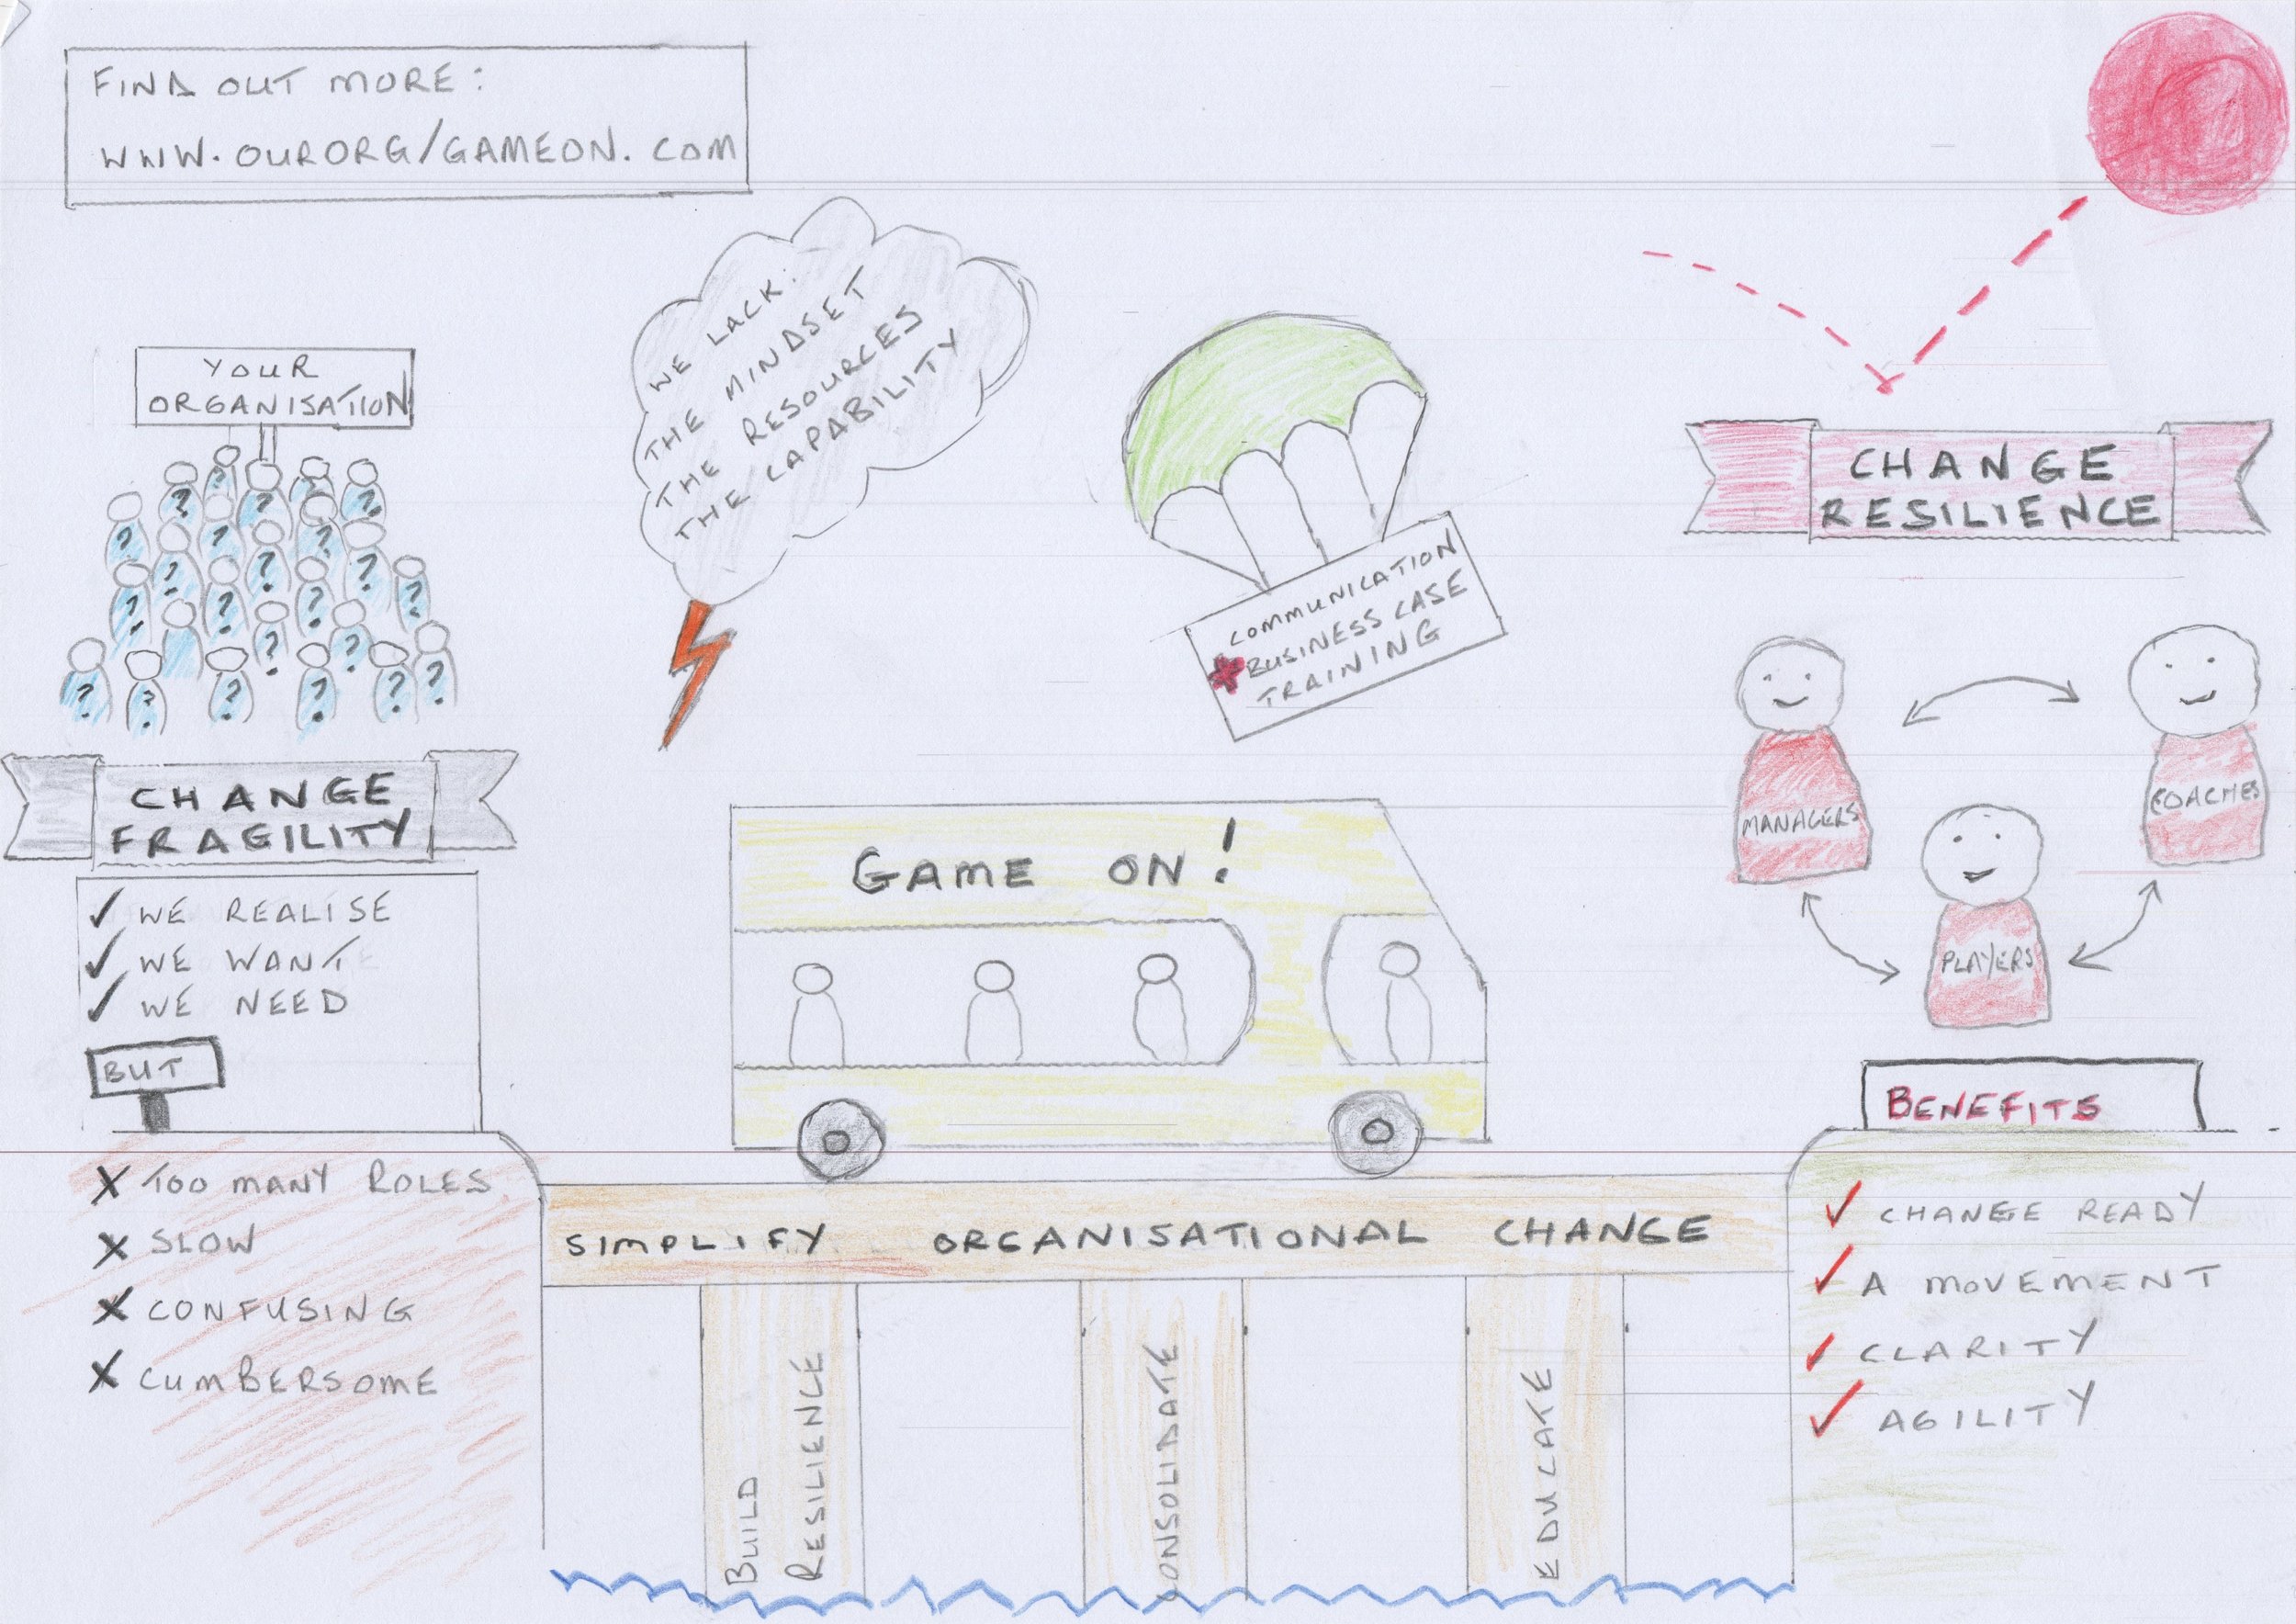 FIND OUT MORE:
WWW.OURORG/GAMEON.COM
YOUR
ORGANISATION
? ? ? ? ? ? ? ? ? ? ? ? ? ? ? ? ? ? ? ? ? ? ?
CHANGE
FRAGILITY
✓ WE REALISE
✓ WE WANT
✓ WE NEED
BUT
X TOO MANY ROLES
X SLOW
X CONFUSING
X CUMBERSOME
WE LACK:
THE MINDSET
THE RESOURCES
THE CAPABILITY
COMMUNICATION
BUSINESS CASE
TRAINING
GAME ON!
SIMPLIFY ORGANISATIONAL CHANGE
BUILD
RESILIENCE
CONSOLIDATE
EDUCATE
CHANGE
RESILIENCE
MANAGERS
COACHES
PLAYERS
BENEFITS
✓ CHANGE READY
✓ A MOVEMENT
✓ CLARITY
✓ AGILITY